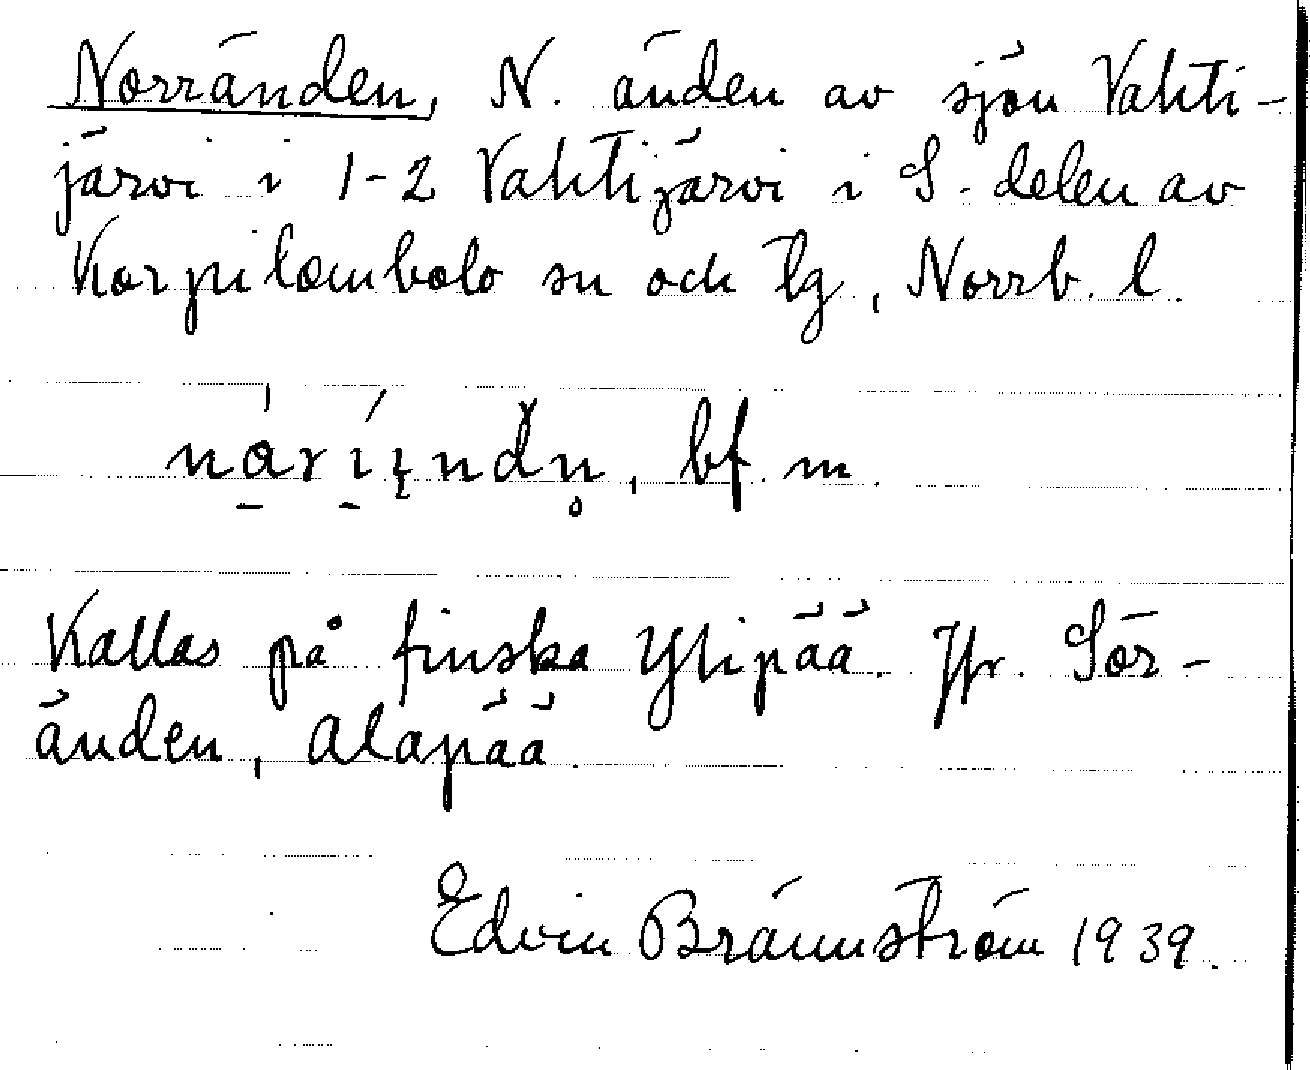 Norränden, N. änden av sjön Vahti-
järvi i 1-2 Vahtijärvi i S. delen av
Korpilombolo sn och tg, Norrb. l.
bf. m.
Kallas på finska Ylipää. Jfr. Sör-
änden, Alapää.
Edvin Brännström 1939.